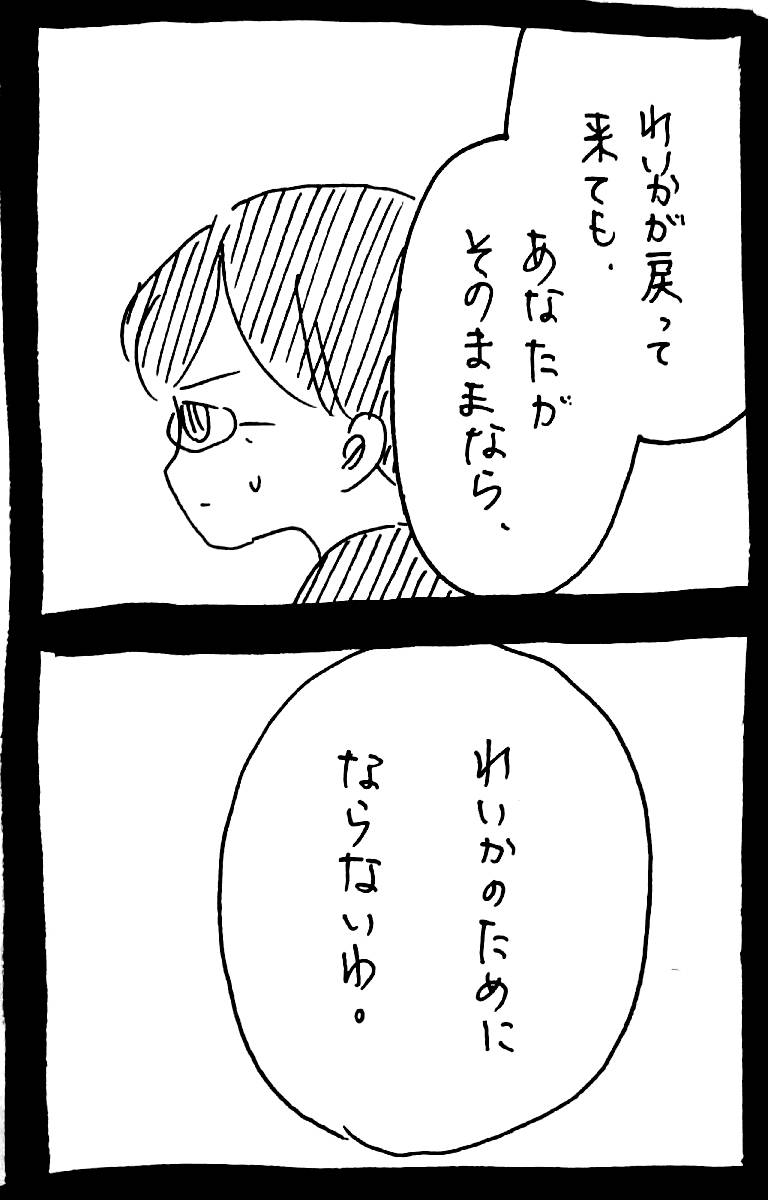 れいかが戻って
来ても、
あなたが
そのままなら、
れいかのために
ならないわ。